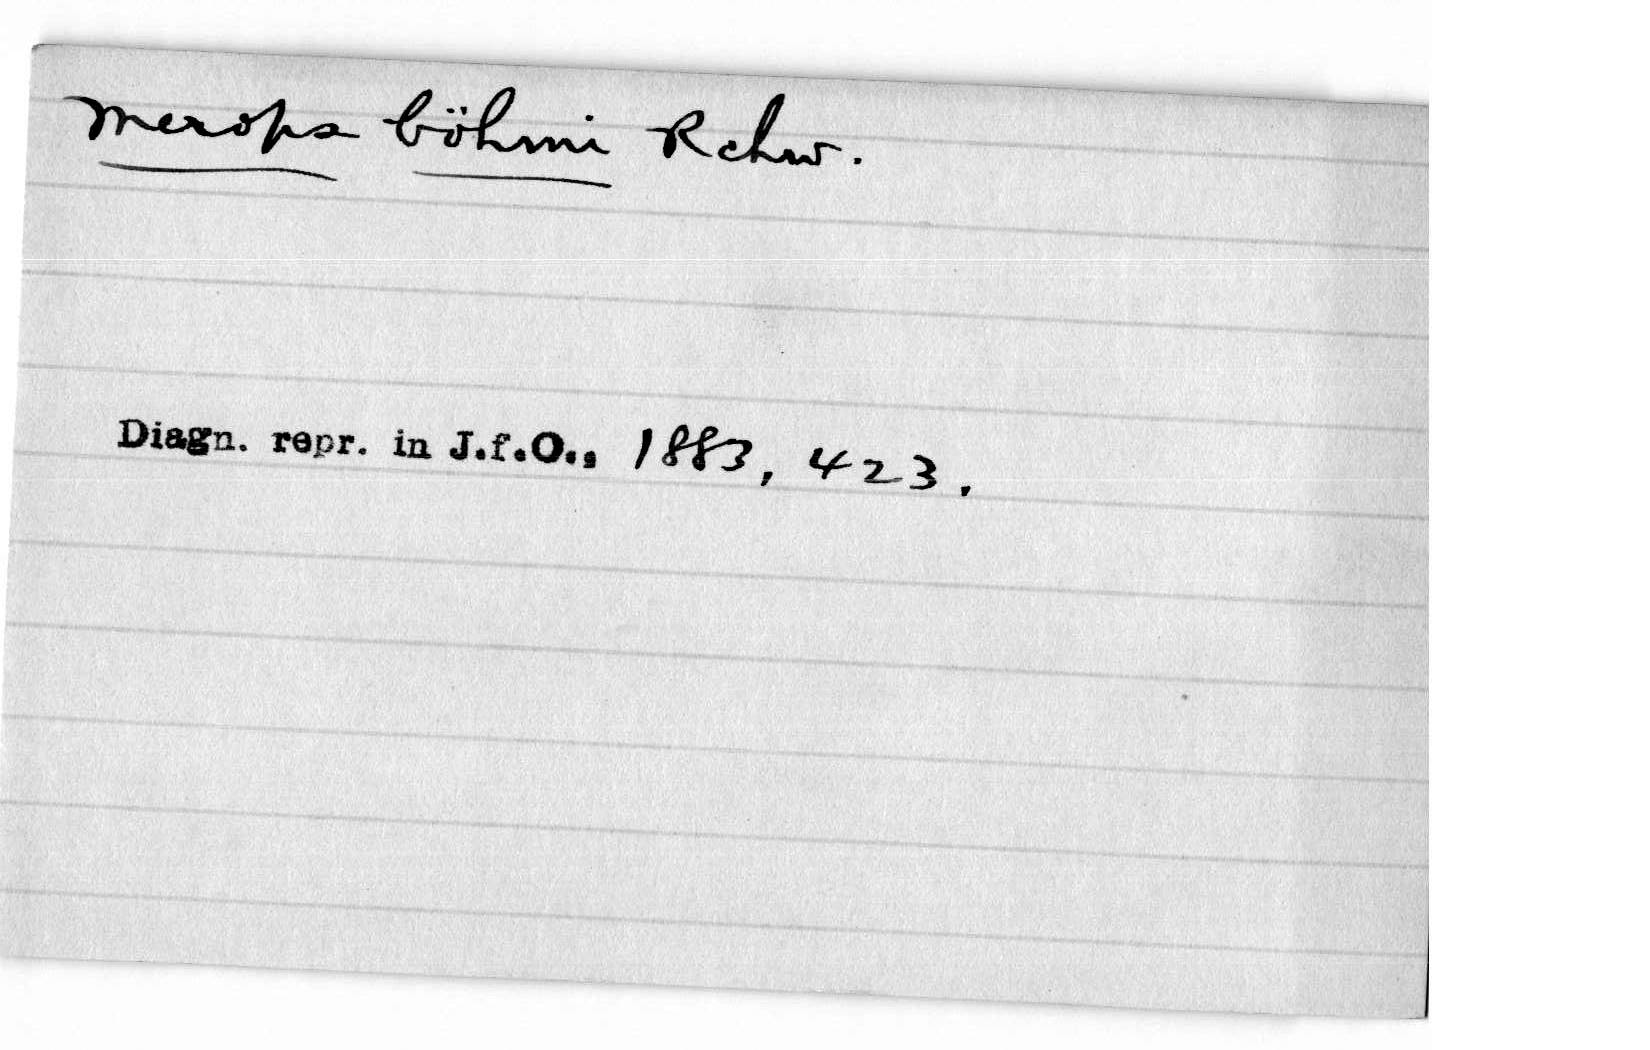 Merops böhmi Rchw.
Diagn. repr. in J.f.O., 1883, 423.